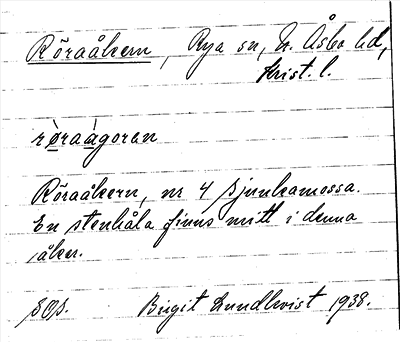 Röraåkern, Rya sn, N. Åsbo hd,
Krist. l.
rø̀raàgoren
Röraåkern, nr 4 Sjunkamossa.
En stenhåla finns mitt i denna
åker.
SOS. Birgit Lundkvist 1938.